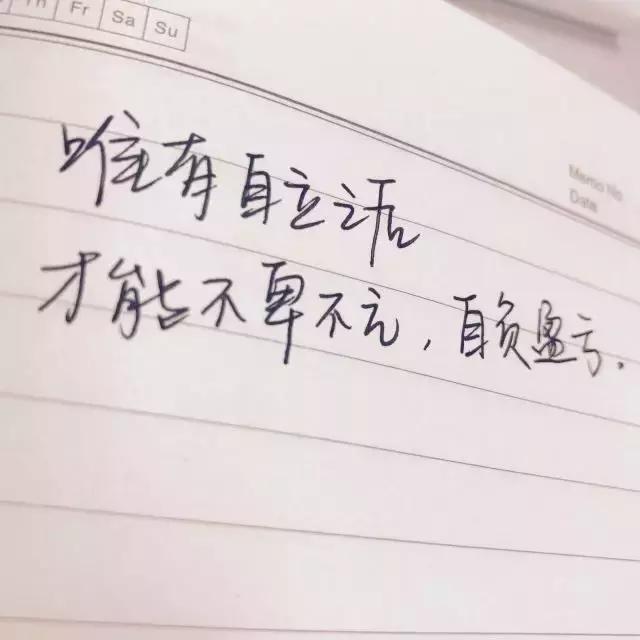 Th Fr Sa Su
Memo No.
Date
唯有自立之后
才能不卑不亢,自负盈亏.